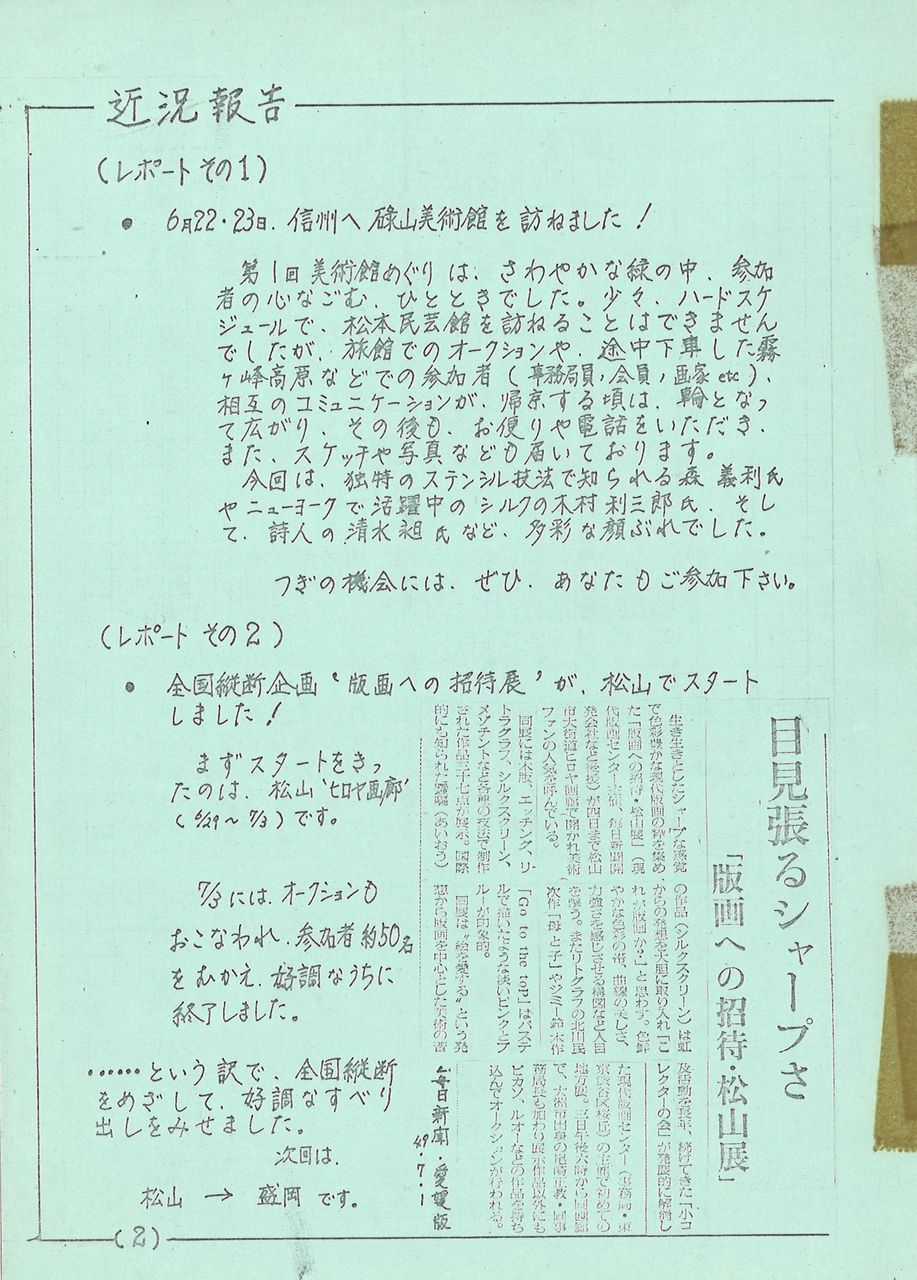 近況報告
(レポート その1)
• 6月22・23日、信州へ 碌山美術館を訪ねました!
第1回美術館めぐりは、さわやかな緑の中、参加
者の心なごむ、ひとときでした。少々、ハードスケ
ジュールで、松本民芸館を訪ねることはできません
でしたが、旅館でのオークションや、途中下車した霧
ヶ峰高原などでの参加者(事務局員,会員,画家etc)、
相互のコミュニケーションが、帰京する頃は、輪となっ
て広がり、その後も、お便りや電話をいただき、
また、スケッチや写真なども届いております。
今回は、独特のステンシル技法で知られる森 義利氏
やニューヨークで活躍中のシルクの木村利三郎氏、そし
て、詩人の清水昶氏など、多彩な顔ぶれでした。
つぎの機会には、ぜひ、あなたもご参加下さい。
(レポート その2)
• 全国縦断企画〝版画への招待展〟が、松山でスタート
しました!
まずスタートをきっ
たのは、松山〝ヒロヤ画廊〟
(6/29〜7/3)です。
7/3には、オークションも
おこなわれ、参加者約50名
をむかえ、好調なうちに
終了しました。
……という訳で、全国縦断
をめざして、好調なすべり
出しをみせました。
次回は、
松山 → 盛岡 です。
目見張るシャープさ
「版画への招待・松山展」
生き生きとしたシャープな感覚
で色彩豊かな現代版画の粋を集め
た「版画への招待・松山展」(現
代版画センター主催、毎日新聞開
発会社など後援)が四日まで松山
市大街道ヒロヤ画廊で開かれ美術
ファンの人気を呼んでいる。
同展には木版、エッチング、リ
トラグフ、シルクスクリーン、
メゾチントなど各種の技法で制作
された作品三十七点が展示。国際
的にも知られた靉嘔(あいおう)
の作品(シルクスクリーン)は虹
からの発想を大胆に取り入れ「こ
れが版画か?」と思わす。色鮮
やかな色彩の帯、曲線の美しさ、
力強さを感じさせる構図など人目
を奪う。またリトグラフの北川民
次作「母と子」やジミー鈴木作
「Go to the top」はパステ
ルで描いたような淡いピンクとブ
ルーが印象的。
同展は〝絵を愛する〟という発
想から版画を中心とした美術の普
及活動を長年、続けてきた「小コ
レクターの会」が発展的に解消し
た現代版画センター(事務局・東
京渋谷区桜丘)の主催で初めての
地方展。三日午後六時から同画廊
で、大洲市出身の尾崎正教・同事
務局長も加わり展示作品以外にも
ピカソ、ルオーなどの作品を持ち
込んでオークションが行われる。
毎日新聞・愛媛版
49・7・1
(2)